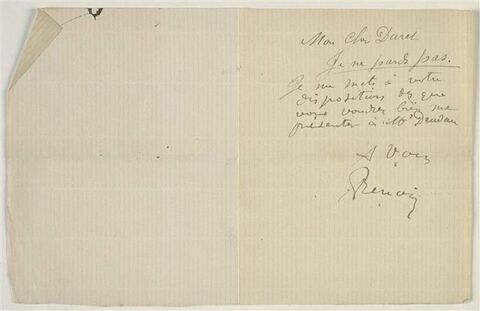 Mon cher Duret
Je ne pars pas.
Je me mets à votre
disposition dès que
vous voudrez bien me
présenter à Mr Deudon
A vous
Renoir